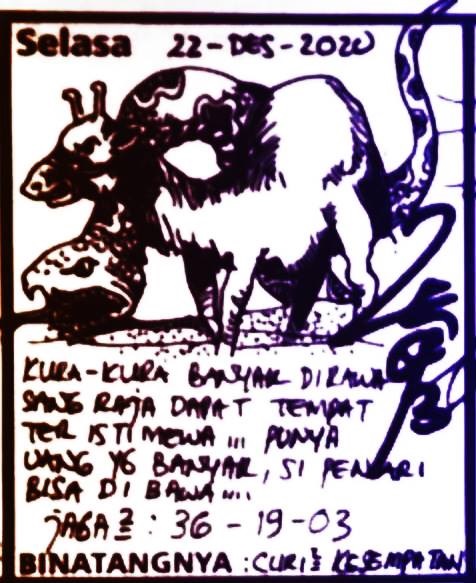 Selasa 22-DES-2020
KURA-KURA BANYAK DIRAWA
SANG RAJA DAPAT TEMPAT
TER ISTIMEWA ... PUNYA
UANG YG BANYAK, SI PENCARI
BISA DI BAWA ....
JAGA2 : 36 - 19 - 03
BINATANGNYA : CURI2 KESEMPATAN